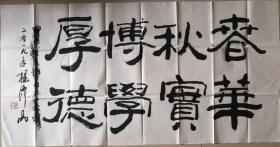 春華
秋實
博學
厚德
二零一九年